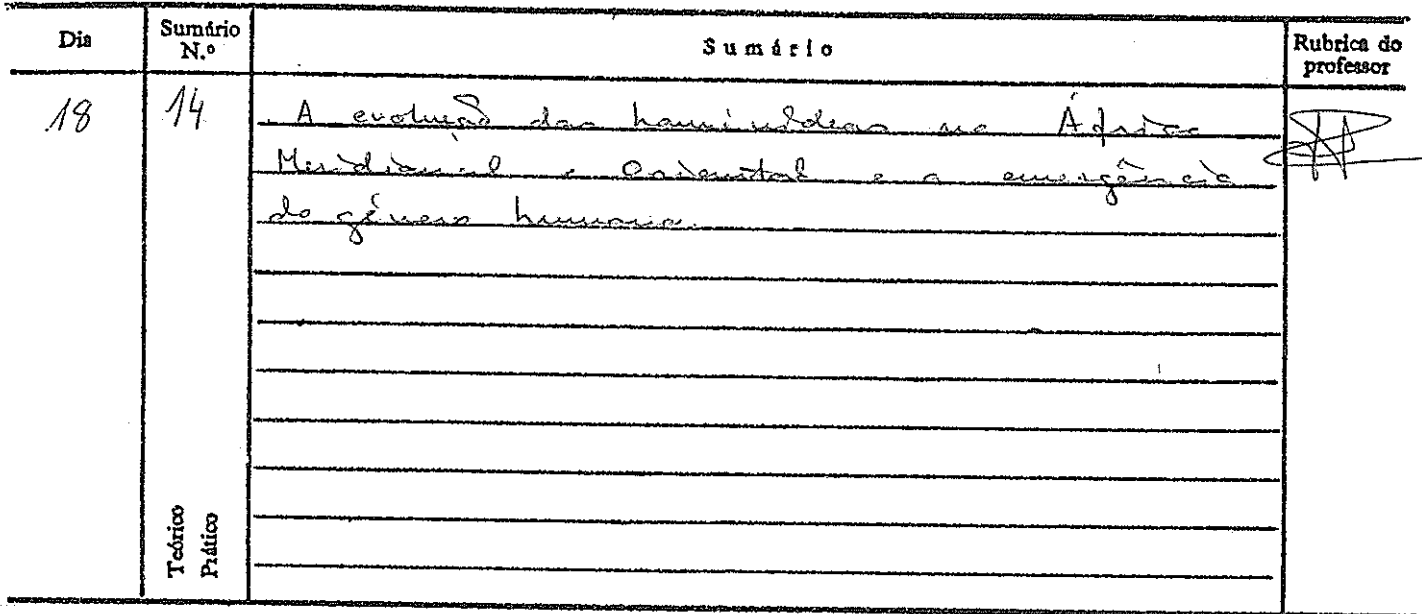 Dia Sumário N.º Sumário Rubrica do professor
18 14 . A evolução dos hominídeos na África
Meridional e Oriental e a emergência
do género humano.
Teórico
Prático